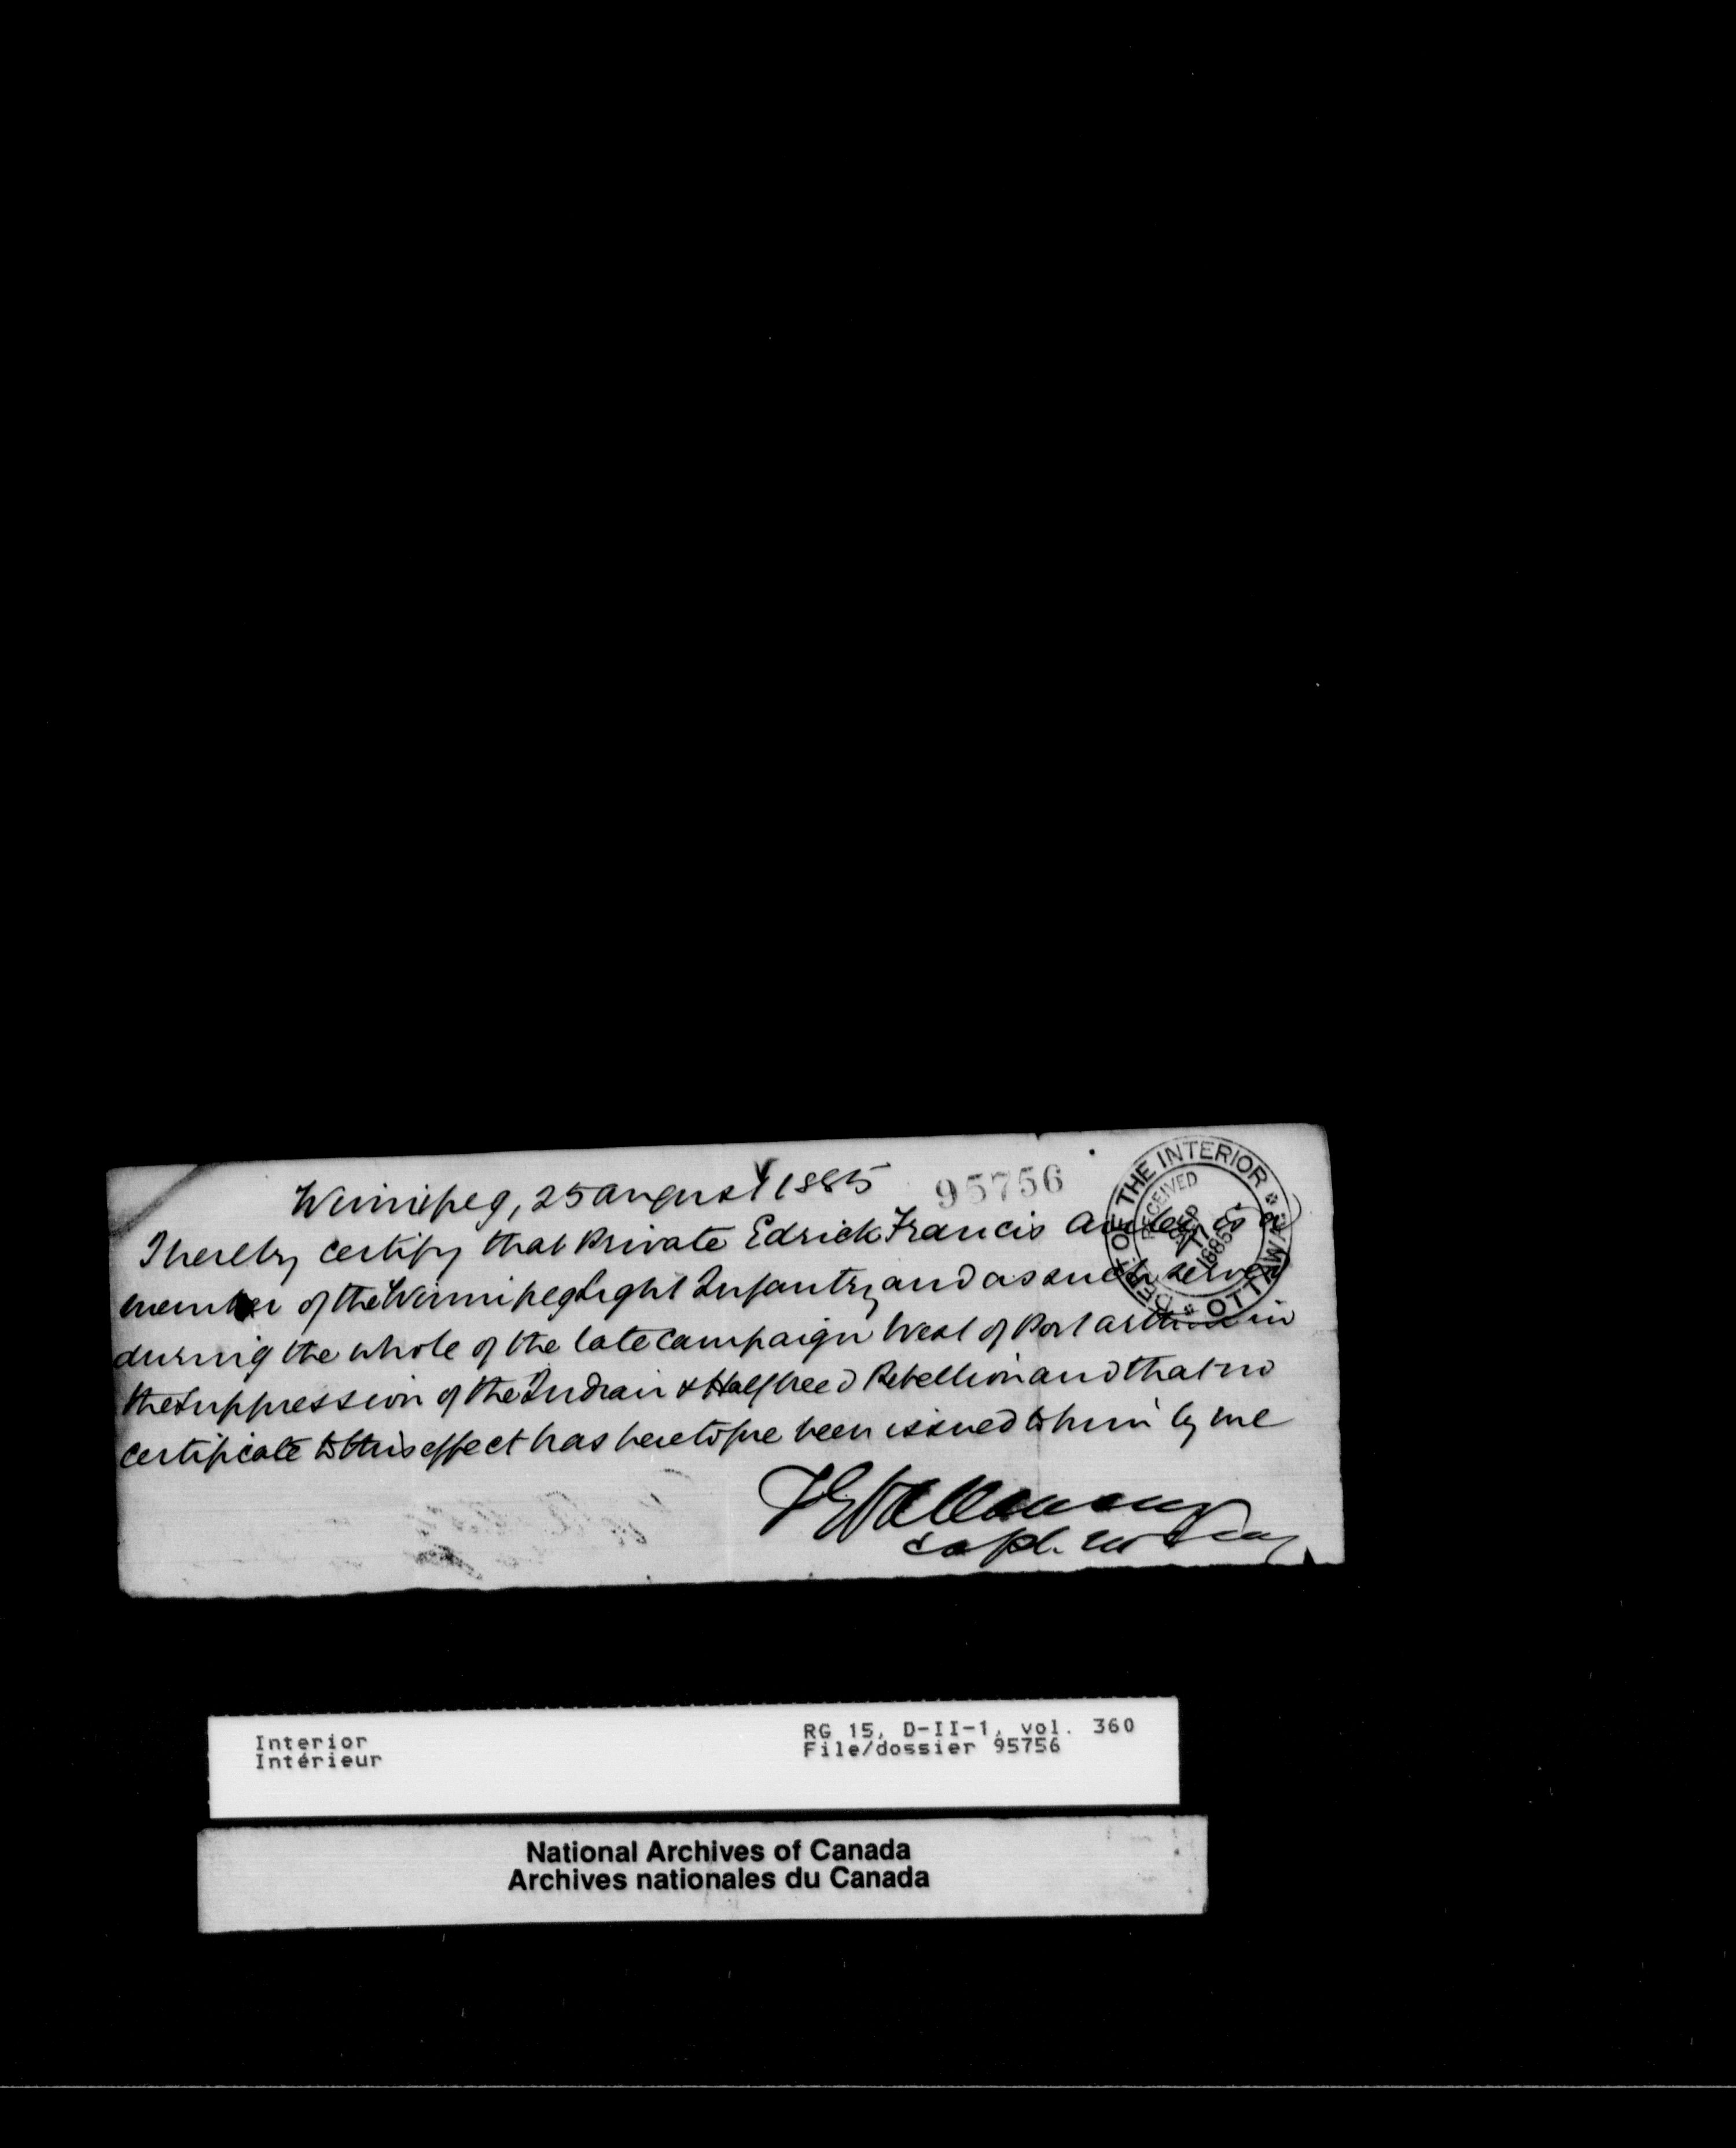 Winnipeg, 25 august 1885
95756
DEPT. OF THE INTERIOR
OTTAWA
RECEIVED
SEP
1885
I hereby certify that Private Edrick Francis is a
member of the Winnipeg Light Infantry and as such served
during the whole of the late campaign West of Port arthur in
the Suppression of the Indian & Halfbreed Rebellion and that no
certificate to this effect has heretofore been issued to him by me
Capt.
Interior
Intérieur
RG 15, D-II-1, vol. 360
File/dossier 95756
National Archives of Canada
Archives nationales du Canada